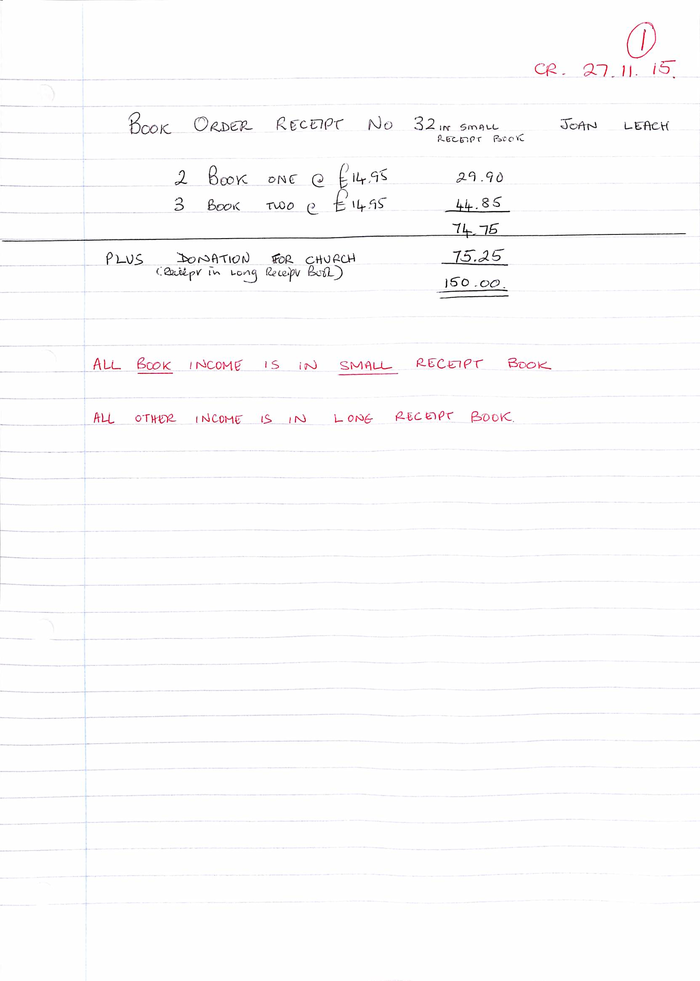 1
CR. 27.11.15.
BOOK ORDER RECEIPT NO 32 IN SMALL RECEIPT BOOK JOAN LEACH
2 BOOK ONE @ £14.95 29.90
3 BOOK TWO @ £14.95 44.85
74.75
PLUS DONATION FOR CHURCH 75.25
(Receipt in Long Receipt Book) 150.00.
ALL BOOK INCOME IS IN SMALL RECEIPT BOOK
ALL OTHER INCOME IS IN LONG RECEIPT BOOK.